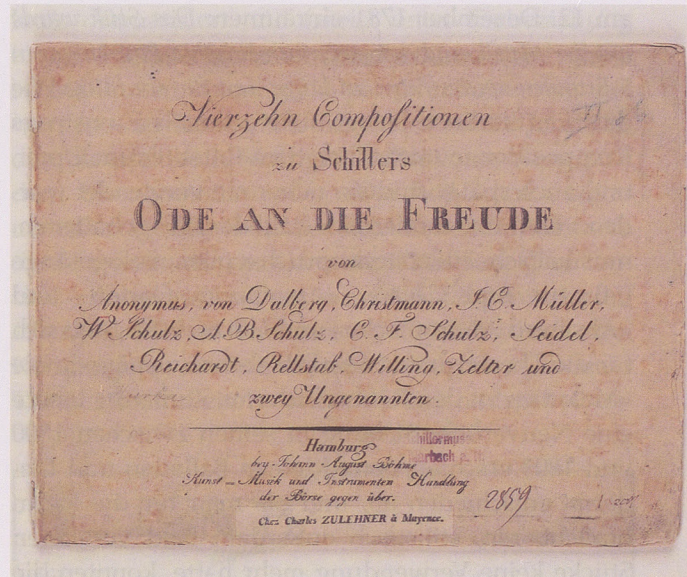 Vierzehn Compositionen
zu Schillers
ODE AN DIE FREUDE
von
Anonymus, von Dalberg, Christmann, I. C. Müller,
W. Schulz, A. B. Schulz, C. F. Schulz, Seidel,
Reichardt, Rellstab, Willing, Zelter und
zwey Ungenannten.
Hamburg
bey Johann August Böhme
Kunst- Musik und Instrumenten Handlung
der Börse gegen über.
Chez Charles ZULEHNER à Mayence.
Schillermuseum
Marbach a. N.
2859